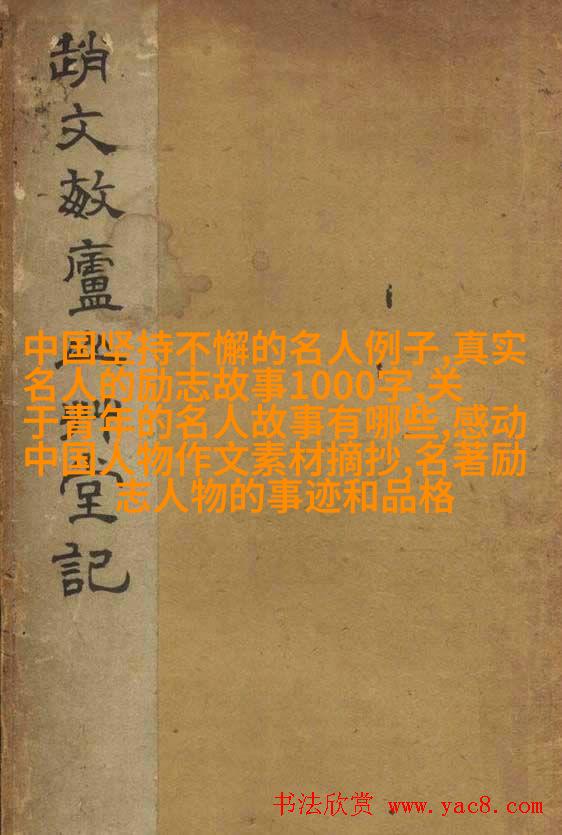 趙文敏廬山艸堂記
中国坚持不懈的名人例子,真实
名人的励志故事1000字,关
于青年的名人故事有哪些,感动
中国人物作文素材摘抄,名著励
志人物的事迹和品格
书法欣赏 www.yac8.com